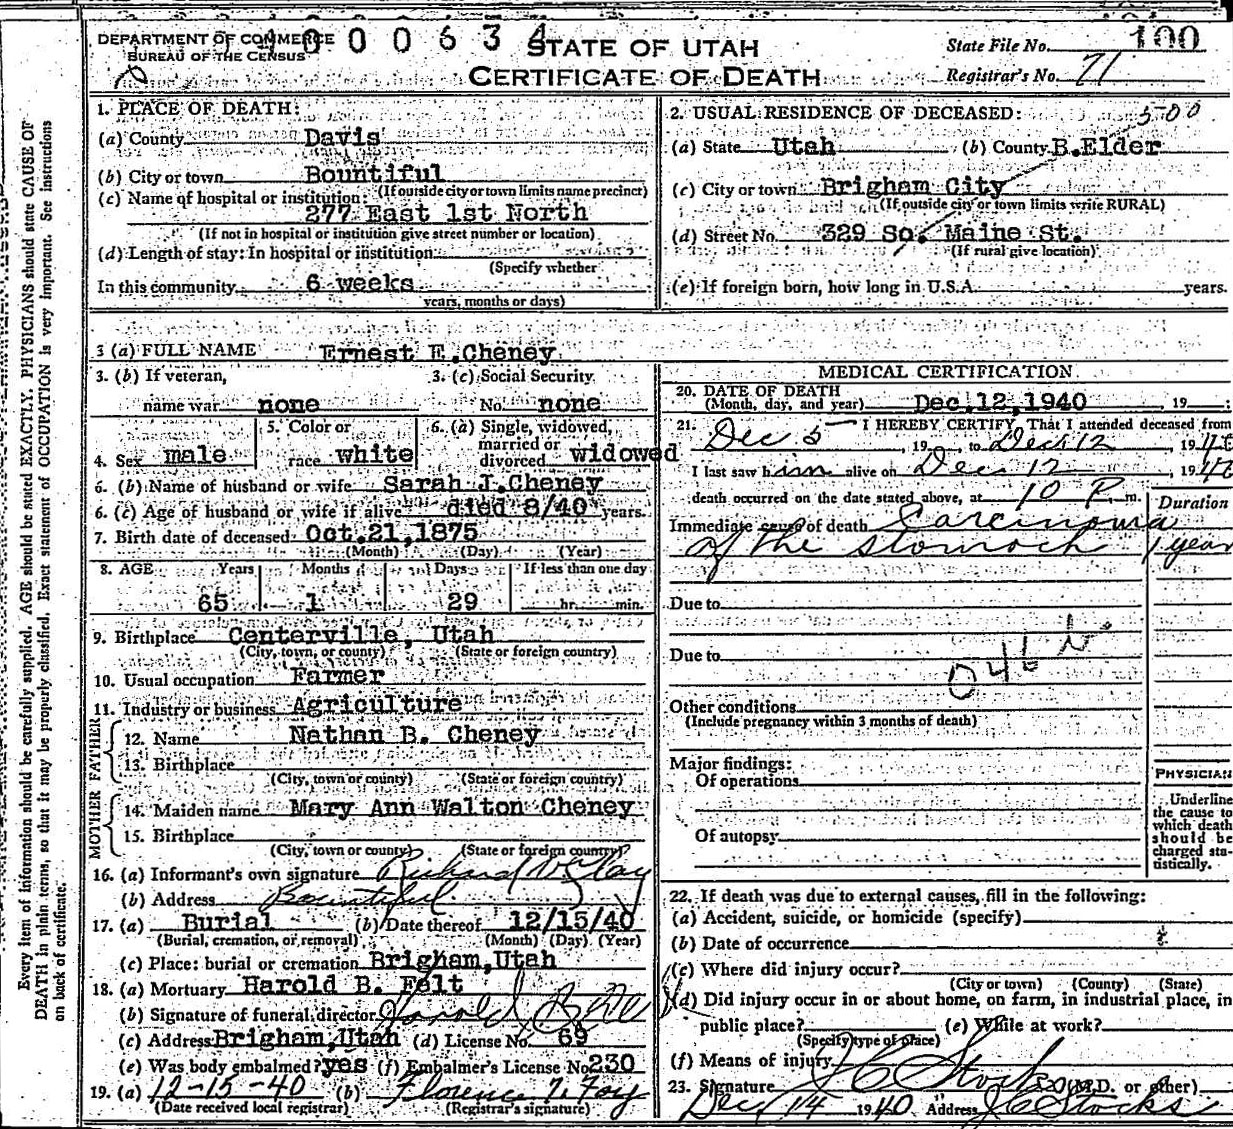 DEPARTMENT OF COMMERCE
BUREAU OF THE CENSUS
0 0 0 6 3 4
STATE OF UTAH
CERTIFICATE OF DEATH
State File No. 100
Registrar's No. 71
1. PLACE OF DEATH:
(a) County Davis
(b) City or town Bountiful
(If outside city or town limits name precinct)
(c) Name of hospital or institution:
277 East 1st North
(If not in hospital or institution give street number or location)
(d) Length of stay: In hospital or institution
(Specify whether
In this community 6 weeks
years, months or days)
2. USUAL RESIDENCE OF DECEASED: 500
(a) State Utah (b) County B.Elder
(c) City or town Brigham City
(If outside city or town limits write RURAL)
(d) Street No. 329 So. Maine St.
(If rural give location)
(e) If foreign born, how long in U.S.A. years.
3 (a) FULL NAME Ernest E.Cheney
3. (b) If veteran, name war none
3. (c) Social Security No. none
4. Sex male
5. Color or race white
6. (a) Single, widowed, married or divorced widowed
6. (b) Name of husband or wife Sarah J.Cheney
6. (c) Age of husband or wife if alive died 8/40 years.
7. Birth date of deceased Oct.21,1875
(Month) (Day) (Year)
8. AGE Years Months Days If less than one day
65 1 29 hr. min.
9. Birthplace Centerville, Utah
(City, town, or county) (State or foreign country)
10. Usual occupation Farmer
11. Industry or business Agriculture
FATHER
12. Name Nathan B. Cheney
13. Birthplace
(City, town or county) (State or foreign country)
MOTHER
14. Maiden name Mary Ann Walton Cheney
15. Birthplace
(City, town or county) (State or foreign country)
16. (a) Informant's own signature Richard
(b) Address Bountiful
17. (a) Burial (b) Date thereof 12/15/40
(Burial, cremation, or removal) (Month) (Day) (Year)
(c) Place: burial or cremation Brigham,Utah
18. (a) Mortuary Harold B. Felt
(b) Signature of funeral director Harold B Felt
(c) Address Brigham,Utah (d) License No. 69
(e) Was body embalmed? yes (f) Embalmer's License No 230
19. (a) 12-15-40 (b) Florence
(Date received local registrar) (Registrar's signature)
MEDICAL CERTIFICATION
20. DATE OF DEATH
(Month, day, and year) Dec.12,1940 , 19 :
21. I HEREBY CERTIFY, That I attended deceased from
Dec 5 , 19 , to Dec 12 , 1940
I last saw him alive on Dec 12 , 1940
death occurred on the date stated above, at 10 P. m.
Duration
Immediate cause of death Carcinoma
of the stomach 1 year
Due to
Due to
046 b
Other conditions
(Include pregnancy within 3 months of death)
Major findings:
Of operations
Of autopsy
PHYSICIAN
Underline
the cause to
which death
should be
charged sta-
tistically.
22. If death was due to external causes, fill in the following:
(a) Accident, suicide, or homicide (specify)
(b) Date of occurrence
(c) Where did injury occur?
(City or town) (County) (State)
(d) Did injury occur in or about home, on farm, in industrial place, in
public place? (e) While at work?
(Specify type of place)
(f) Means of injury
23. Signature J C Stocks (M.D. or other)
Dec 14 1940 Address J C Stocks
Every item of information should be carefully supplied. AGE should be stated EXACTLY. PHYSICIANS should state CAUSE OF
DEATH in plain terms, so that it may be properly classified. Exact statement of OCCUPATION is very important. See instructions
on back of certificate.